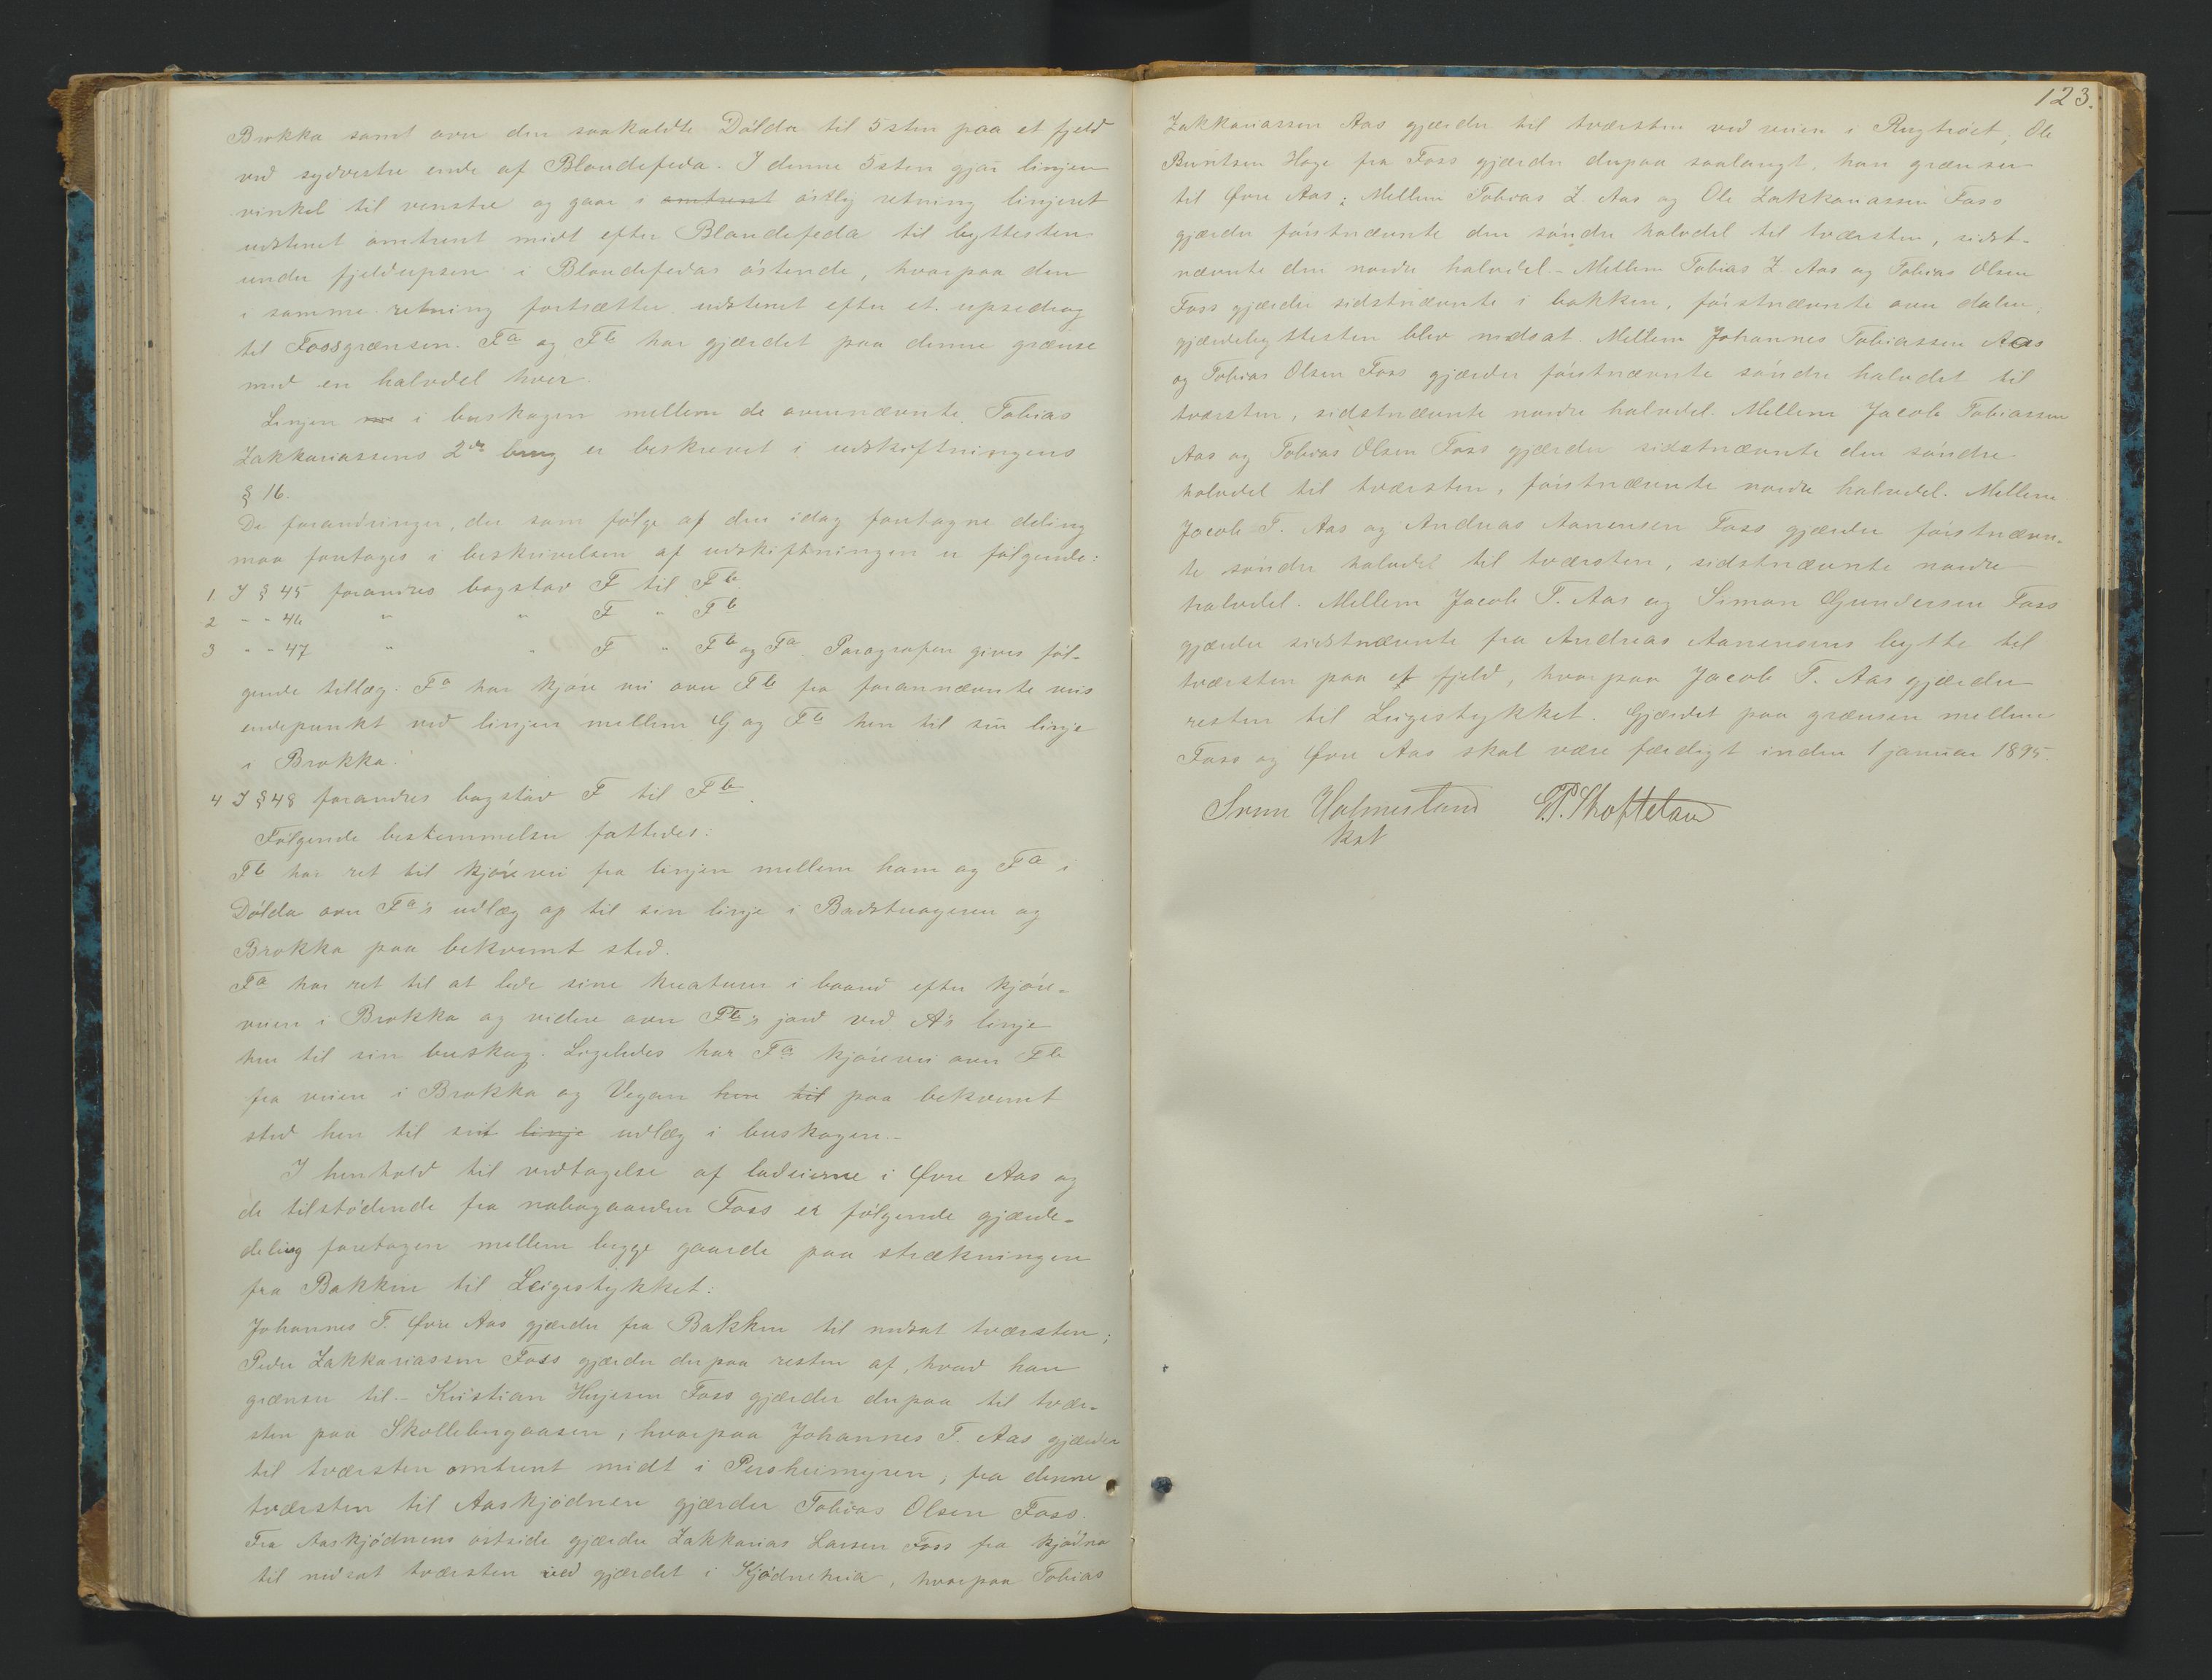 Brokka samt over den saakaldte Dólda til 5 sten paa et fjeld
ved sydvestre ende af Blandefeda. I denne 5 sten gjør linjen
vinkel til venstre og gaar i omtrent østlig retning linjeret
udstenet omtrent midt efter Blandefeda til byttesten
under fjeldupsen i Blandefedas óstende, hvorpaa den
i samme retning fortsætter udstenet efter et upsedrag
til Fossgrænsen. Fa og Fb har gjærdet paa denne grænse
med en halvdel hver.
Linjen i buskogen mellem de ovennævnte Tobias
Zakkariassens 2de brug er beskrevet i udskiftningens
§ 16.
De forandringer, der som fólge af den idag foretagne deling
maa foretages i beskrivelsen af udskiftningen er fólgende:
1 I § 45 forandres bogstav F til Fb
2 " " 46 " " F " Fb
3 " " 47 " " F " Fb og Fa. Paragrafen gives fól-
gende tillæg. Fa har kjóre vei over Fb fra forannævnte veis
endepunkt ved linjen mellem G og Fb hen til sin linje
i Brokka.
4 I § 48 forandres bogstav F til Fb.
Fólgende bestemmelser fattedes:
Fb har ret til kjórevei fra linjen mellem ham og Fa i
Dólda over Fa's udlæg op til sin linje i Badstuogeren og
Brokka paa bekvemt sted.
Fa har ret til at lede sine kreaturer i baand efter kjóre-
veien i Brokka og videre over Fb's jord ved A's linje
hen til sin buskog. Ligeledes har Fa kjórevei over Fb
fra veien i Brokka og Vegan hen til paa bekvemt
sted hen til sit linje udlæg i buskogen.-
I henhold til vedtagelse af lodeierne i Øvre Aas og
de tilstódende fra nabogaarden Foss er fólgende gjærde-
deling foretagen mellem begge gaarde paa strækningen
fra Bakken til Leigestykket:
Johannes T. Øvre Aas gjærder fra Bakken til nedsat tværsten;
Peder Zakkariassen Foss gjærder derpaa resten af, hvad han
grænser til.- Kristian Hujesen Foss gjærder derpaa til tvær-
sten paa Skollebergaasen; hvorpaa Johannes T. Aas gjærder
til tværsten omtrent midt i Persheimyren; fra denne
tværsten til Aaskjódnen gjærder Tobias Olsen Foss.
Fra Aaskjódnens óstside gjærder Zakkarias Larsen Foss fra kjódna
til nedsat tværsten ved gjærdet i Kjódneheia, hvorpaa Tobias
123.
Zakkariassen Aas gjærder til tværsten ved veien i Rugtróet; Ole
Berntsen Hage fra Foss gjærder derpaa saalangt, han grænser
til Øvre Aas; Mellem Tobias Z. Aas og Ole Zakkariassen Foss
gjærder fórstnævnte den sóndre halvdel til tværsten, sidst-
nævnte den nordre halvdel.- Mellem Tobias Z. Aas og Tobias Olsen
Foss gjærder sidstnævnte i bakken, fórstnævnte over dalen;
gjærdebyttesten blev nedsat. Mellem Johannes Tobiassen Aas
og Tobias Olsen Foss gjærder fórstnævnte sóndre halvdel til
tværsten, sidstnævnte nordre halvdel. Mellem Jacob Tobiassen
Aas og Tobias Olsen Foss gjærder sidstnævnte den sóndre
halvdel til tværsten, fórstnævnte nordre halvdel. Mellem
Jacob T. Aas og Andreas Aanensen Foss gjærder fórstnævn-
te sóndre halvdel til tværsten, sidstnævnte nordre
halvdel. Mellem Jacob T. Aas og Simon Gundersen Foss
gjærder sidstnævnte fra Andreas Aanensens bytte til
tværsten paa et fjeld, hvorpaa Jacob T. Aas gjærder
resten til Leigestykket. Gjærdet paa grænsen mellem
Foss og Øvre Aas skal være færdigt inden 1 januar 1895.
Sven Holmesland G.P. Skoftelan
kst